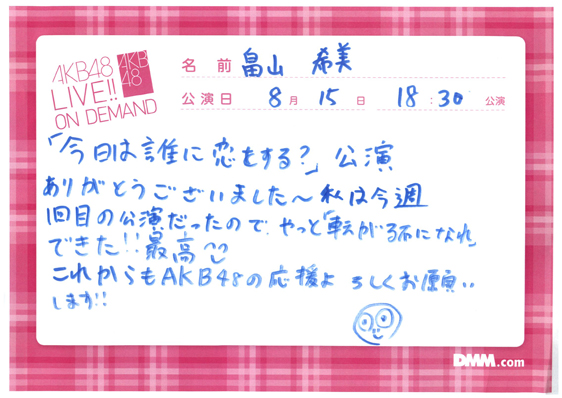 AKB48
LIVE!!
ON DEMAND
AKB
48
名 前 畠山 希美
公演日 8月 15日 18:30 公演
「今日は誰に恋をする?」公演
ありがとうございました〜 私は今週
1回目の公演だったので、やっと「転がる石になれ」
できた!! 最高
これからもAKB48の応援よろしくお願い
します!!
DMM.com